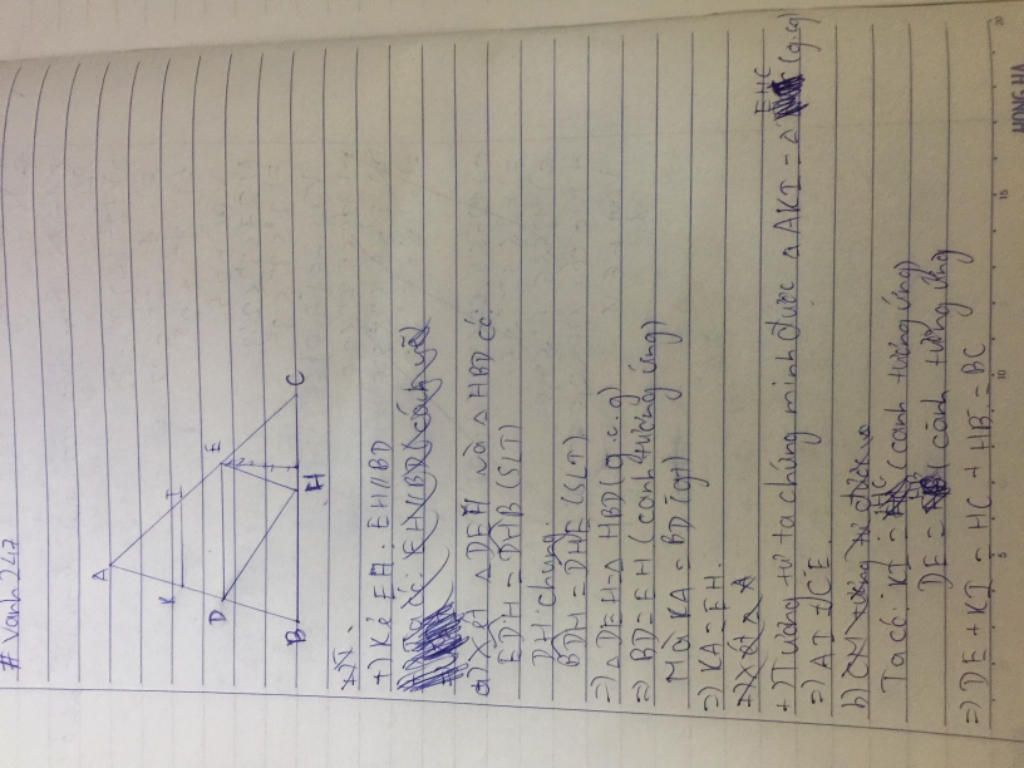 # Vanh 247
A
K
I
D
E
B
H
C
+) Kẻ EH: EH // BD
a) Xét Δ DEH và Δ HBD có
EDH = DHB (SLT)
DH: chung
BDH = DHE (SLT)
=) Δ DEH = Δ HBD (g.c.g)
=) BD = EH (cạnh tương ứng)
Mà KA = BD (gt)
=) KA = EH.
+) Tương tự ta chứng minh được Δ AKI = Δ EHC (g.c.g)
=) AI = CE
b)
Ta có: KI = HC (cạnh tương ứng)
DE = HB (cạnh tương ứng
=) DE + KI = HC + HB = BC
5
10
15
20
HONG HA